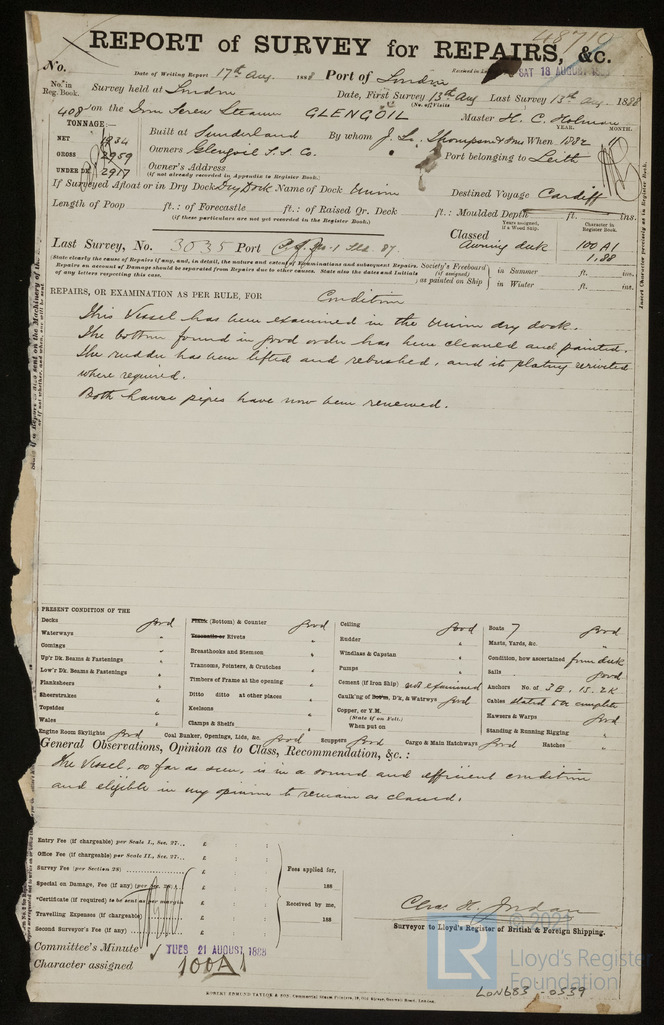 48710
REPORT of SURVEY for REPAIRS, &c.
No.
Date of Writing Report 17th Aug. 1888 Port of London
SAT 18 AUGUST 1888
No. in Reg. Book.
Survey held at London Date, First Survey 13th Aug Last Survey 15th Aug. 1888
(No. of Visits
408 on the Iron Screw Steamer GLENGOIL Master H. C. Holman
TONNAGE:—
NET 1934
GROSS 2959
UNDER DK 2917
Built at Sunderland By whom J. L. Thompson & Sons When 1882
YEAR. MONTH.
Owners Glengoil S.S. Co. Port belonging to Leith
Owner's Address
(if not already recorded in Appendix to Register Book.)
If Surveyed Afloat or in Dry Dock Dry Dock Name of Dock Union Destined Voyage Cardiff
Length of Poop ft.: of Forecastle ft.: of Raised Qr. Deck ft.: Moulded Depth ft. ins.
(if these particulars are not yet recorded in the Register Book.)
Years assigned, if a Wood Ship.
Character in Register Book.
Last Survey, No. 3035 Port
Classed Awning deck 100A1
1.88
(State clearly the cause of Repairs if any, and, in detail, the nature and extent of Examinations and subsequent Repairs.
Repairs on account of Damage should be separated from Repairs due to other causes. State also the dates and Initials of any letters respecting this case.
Society's Freeboard (if assigned) as painted on Ship
in Summer ft. ins.
in Winter ft. ins.
REPAIRS, OR EXAMINATION AS PER RULE, FOR Condition
This Vessel has been examined in the Union dry dock.
The bottom found in good order has been cleaned and painted.
The rudder has been lifted and rebushed, and its plating reriveted
where required.
Both hawse pipes have now been renewed.
PRESENT CONDITION OF THE
Decks good
Waterways "
Comings "
Up'r Dk. Beams & Fastenings "
Low'r Dk. Beams & Fastenings "
Planksheers "
Sheerstrakes "
Topsides "
Wales "
Plank (Bottom) & Counter good
Treenails or Rivets "
Breasthooks and Stemson "
Transoms, Pointers, & Crutches "
Timbers of Frame at the opening "
Ditto ditto at other places "
Keelsons "
Clamps & Shelfs "
Ceiling good
Rudder "
Windlass & Capstan "
Pumps "
Cement (if Iron Ship) not examined
Caulk'ng of Bot'm, D'k, & Watrwys good
Copper, or Y.M. (State if on Felt.)
When put on
Boats 7 good
Masts, Yards, &c. "
Condition, how ascertained from deck
Sails good
Anchors No. of 3B. 1S. 2K
Cables stated to be complete
Hawsers & Warps good
Standing & Running Rigging "
Engine Room Skylights good Coal Bunker, Openings, Lids, &c. good Scuppers good Cargo & Main Hatchways good Hatches "
General Observations, Opinion as to Class, Recommendation, &c.:
The Vessel, so far as seen, is in a sound and efficient condition
and eligible in my opinion to remain as classed.
Entry Fee (if chargeable) per Scale I., Sec. 27... £ : :
Office Fee (if chargeable) per Scale II., Sec. 27... £ : :
Survey Fee (per Section 28) £ : :
Special on Damage, Fee (if any) (per Sec. 28) £ : :
*Certificate (if required) to be sent as per margin £ : :
Travelling Expenses (if chargeable) £ : :
Second Surveyor's Fee (if any) £ : :
Fees applied for,
188
Received by me,
188
Chas. H. Jordan
Surveyor to Lloyd's Register of British & Foreign Shipping.
Committee's Minute TUES 21 AUGUST 1888
Character assigned 100A1
© 2021
LR
Lloyd's Register
Foundation
LON683-0539
ROBERT EDMUND TAYLOR & SON, Commercial Steam Printers, 19, Old Street, Goswell Road, London.